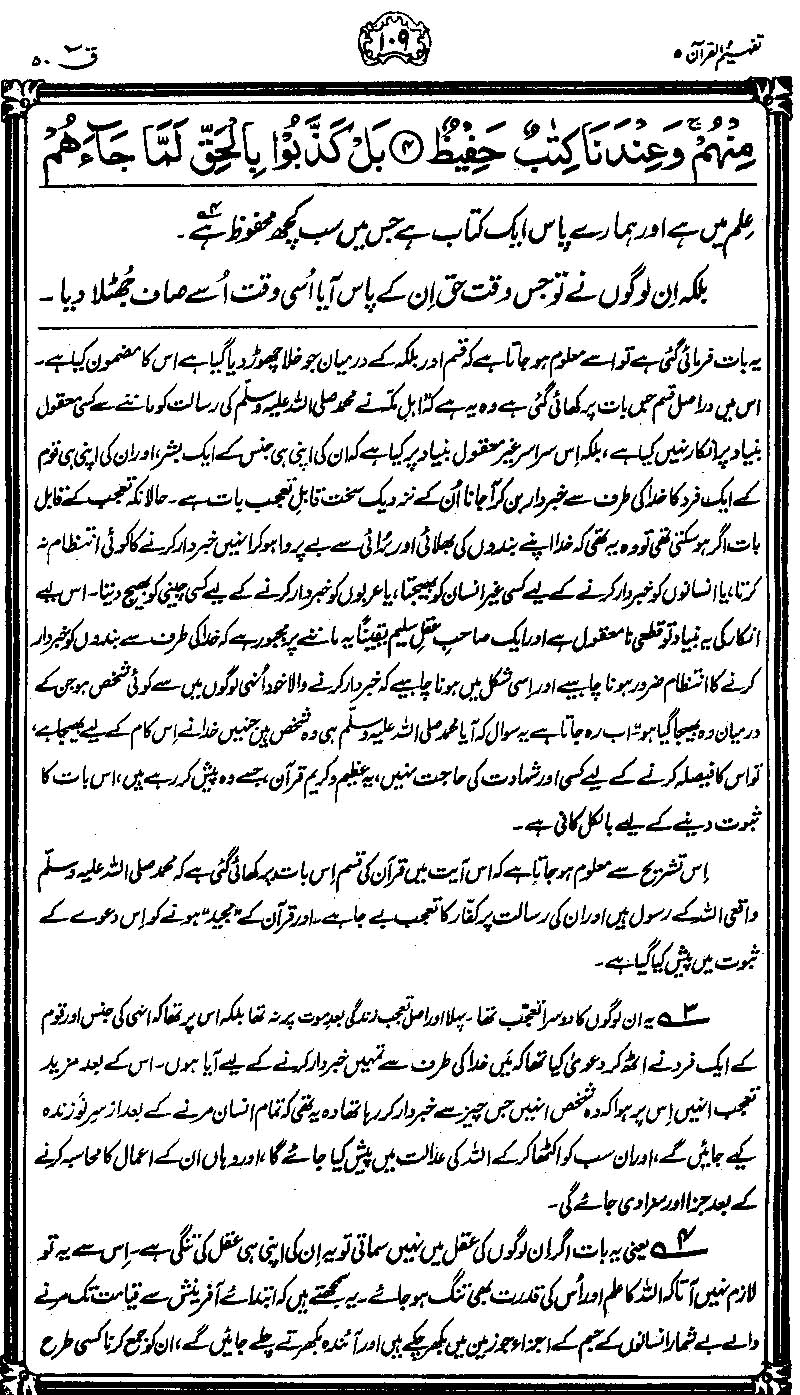 تفہیم القرآن ۵
۱۰۹
قٓ ۵۰
مِنْهُمْ ۚ وَعِنْدَنَا كِتٰبٌ حَفِيْظٌ ﴿۴﴾ بَلْ كَذَّبُوْا بِالْحَقِّ لَمَّا جَآءَهُمْ
علم میں ہے اور ہمارے پاس ایک کتاب ہے جس میں سب کچھ محفوظ ہے۴۔
بلکہ اِن لوگوں نے تو جس وقت حق اِن کے پاس آیا اُسی وقت اُسے صاف جُھٹلا دیا۔
یہ بات فرمائی گئی ہے تو اسے معلوم ہو جاتا ہے کہ قسم اور بلکہ کے درمیان جو خلا چھوڑ دیا گیا ہے اس کا مضمون کیا ہے۔
اس میں دراصل قسم جس بات پر کھائی گئی ہے وہ یہ ہے کہ ”اہل مکہ نے محمد صلی اللہ علیہ وسلم کی رسالت کو ماننے سے کسی معقول
بنیاد پر انکار نہیں کیا ہے، بلکہ اِس سراسر غیر معقول بنیاد پر کیا ہے کہ ان کی اپنی ہی جنس کے ایک بشر، اور ان کی اپنی ہی قوم
کے ایک فرد کا خدا کی طرف سے خبردار بن کر آجانا اُن کے نزدیک سخت قابلِ تعجب بات ہے۔ حالانکہ تعجب کے قابل
بات اگر ہو سکتی تھی تو وہ یہ تھی کہ خدا اپنے بندوں کی بھلائی اور برائی سے بے پروا ہو کر انہیں خبردار کرنے کا کوئی انتظام نہ
کرتا، یا انسانوں کو خبردار کرنے کے لیے کسی غیر انسان کو بھیجتا، یا عربوں کو خبردار کرنے کے لیے کسی چینی کو بھیج دیتا۔ اس لیے
انکار کی یہ بنیاد تو قطعی نامعقول ہے اور ایک صاحب عقلِ سلیم یقیناً یہ ماننے پر مجبور ہے کہ خدا کی طرف سے بندوں کو خبردار
کرنے کا انتظام ضرور ہونا چاہیے اور اِسی شکل میں ہونا چاہیے کہ خبردار کرنے والا خود اُنہی لوگوں میں سے کوئی شخص ہو جن کے
درمیان وہ بھیجا گیا ہو“ اب رہ جاتا ہے یہ سوال کہ آیا محمد صلی اللہ علیہ وسلم ہی وہ شخص ہیں جنہیں خدا نے اِس کام کے لیے بھیجا ہے،
تو اس کا فیصلہ کرنے کے لیے کسی اور شہادت کی حاجت نہیں، یہ عظیم و کریم قرآن، جسے وہ پیش کر رہے ہیں، اس بات کا
ثبوت دینے کے لیے بالکل کافی ہے۔
اِس تشریح سے معلوم ہو جاتا ہے کہ اس آیت میں قرآن کی قسم اِس بات پر کھائی گئی ہے کہ محمد صلی اللہ علیہ وسلم
واقعی اللہ کے رسول ہیں اور ان کی رسالت پر کفّار کا تعجب بے جا ہے۔ اور قرآن کے ”مجید“ ہونے کو اِس دعوے کے
ثبوت میں پیش کیا گیا ہے۔
۳ یہ ان لوگوں کا دوسرا تعجّب تھا۔ پہلا اور اصل تعجب زندگی بعد موت پر نہ تھا بلکہ اس پر تھا کہ انہی کی جنس اور قوم
کے ایک فرد نے اٹھ کر دعویٰ کیا تھا کہ میں خدا کی طرف سے تمہیں خبردار کرنے کے لیے آیا ہوں۔ اس کے بعد مزید
تعجب انہیں اِس پر ہوا کہ وہ شخص انہیں جس چیز سے خبردار کر رہا تھا وہ یہ تھی کہ تمام انسان مرنے کے بعد از سرِ نو زندہ
کیے جائیں گے، اور ان سب کو اکٹھا کر کے اللہ کی عدالت میں پیش کیا جائے گا، اور وہاں ان کے اعمال کا محاسبہ کرنے
کے بعد جزا اور سزا دی جائے گی۔
۴ یعنی یہ بات اگر اِن لوگوں کی عقل میں نہیں سماتی تو یہ اِن کی اپنی ہی عقل کی تنگی ہے۔ اِس سے یہ تو
لازم نہیں آتا کہ اللہ کا علم اور اُس کی قدرت بھی تنگ ہو جائے۔ یہ سمجھتے ہیں کہ ابتدائے آفرینش سے قیامت تک مرنے
والے بے شمار انسانوں کے جسم کے اجزاء جو زمین میں بکھر چکے ہیں اور آئندہ بکھرتے چلے جائیں گے، ان کو جمع کرنا کسی طرح